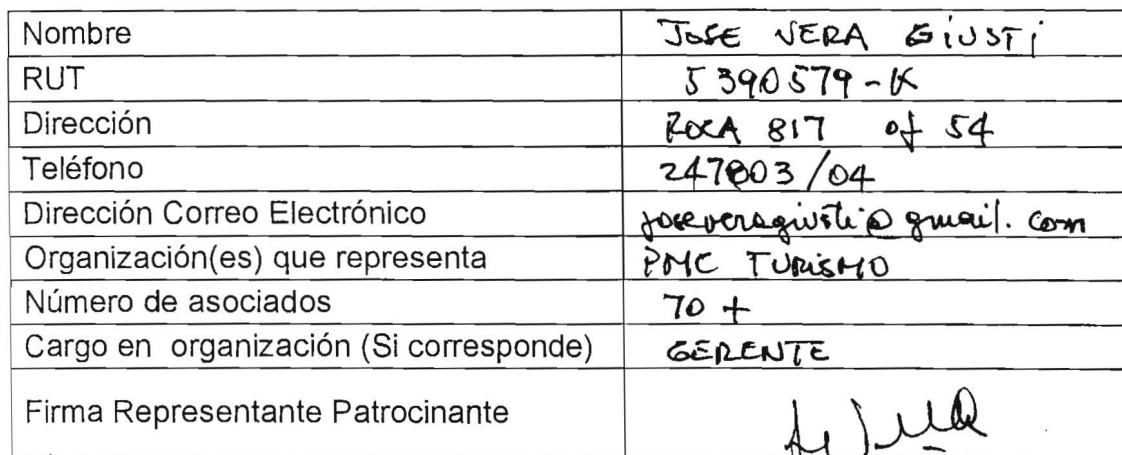 Nombre JOSE VERA GIUSTI
RUT 5390579-K
Dirección ROCA 817 of 54
Teléfono 247803/04
Dirección Correo Electrónico joseveragiusti@gmail.com
Organización(es) que representa PMC TURISMO
Número de asociados 70 +
Cargo en organización (Si corresponde) GERENTE
Firma Representante Patrocinante